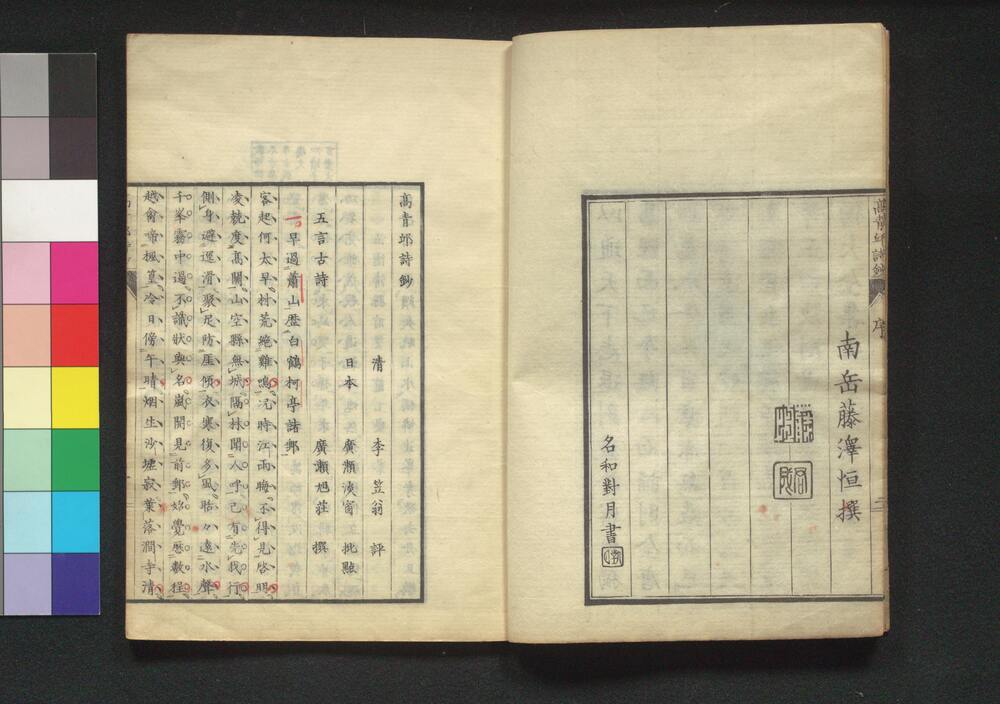 高青邱詩鈔
序
二
南岳藤澤恒撰
名和對月書
高青邱詩鈔
清 李笠翁 評
日本 廣瀨淡窗 批點
廣瀨旭莊 撰
五言古詩
早過蕭山歷白鶴柯亭諸郵
客起何太早村荒絶雞鳴況時江雨晦不得見啓明
凌兢度高關山空縣無城隔林聞人呼已有先我行
側身避逕滑聚足防厓傾衣寒復多風聒々遠水聲
千峯霧中過不識狀與名嵐開見前郵始覺歷數程
越禽帝楓篁冷日傍午晴烟生沙墟寂葉落澗寺清